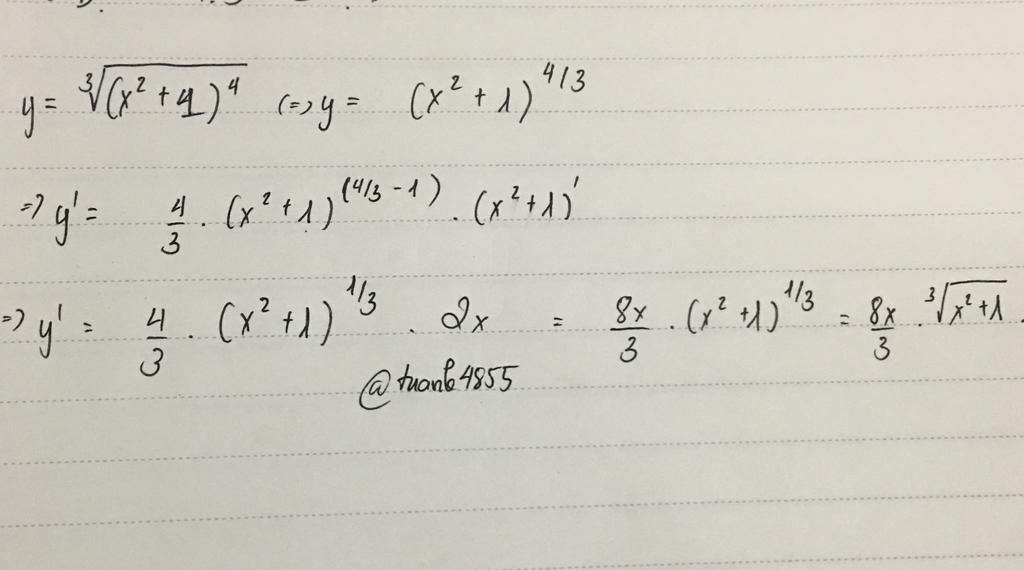 y = ∛(x² + 1)⁴ (=) y = (x² + 1)^4/3
=) y' = 4/3 . (x² + 1)^(4/3 - 1) . (x² + 1)'
=) y' = 4/3 . (x² + 1)^1/3 . 2x = 8x/3 . (x² + 1)^1/3 = 8x/3 . ∛x² + 1 .
@tuanb4855